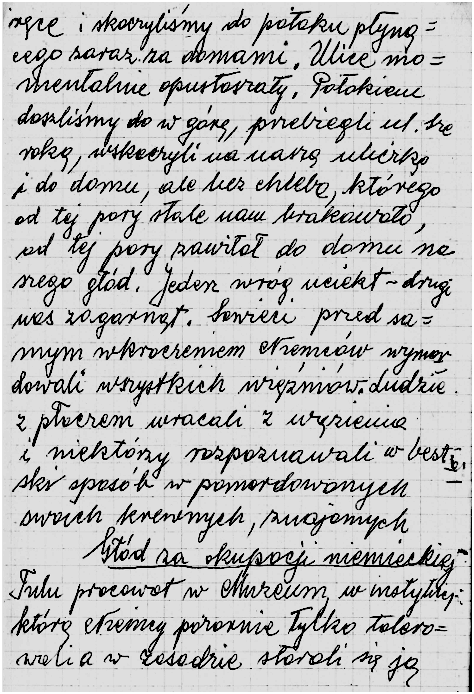 ręce i skoczyliśmy do potoku płyną=
cego zaraz za domami. Ulice mo=
mentalnie opustoszały. Potokiem
doszliśmy do w górę, przebiegli ul. Sze
roką, wskoczyli na naszą uliczkę
i do domu, ale bez chleba, którego
od tej pory stale nam brakowało,
od tej pory zawitał do domu na
szego głód. Jeden wróg uciekł – drugi
nas zagarnął. Sowieci przed sa=
mym wkroczeniem Niemców wymor
dowali wszystkich więźniów. Ludzie
z płaczem wracali z więzienia
i niektórzy rozpoznawali w best
ski sposób w pomordowanych
swoich krewnych, znajomych
Głód za okupacji niemieckiej
Tulu pracował w Muzeum, w instytucji
którą Niemcy pozornie tylko tolero=
wali a w zasadzie starali się ją